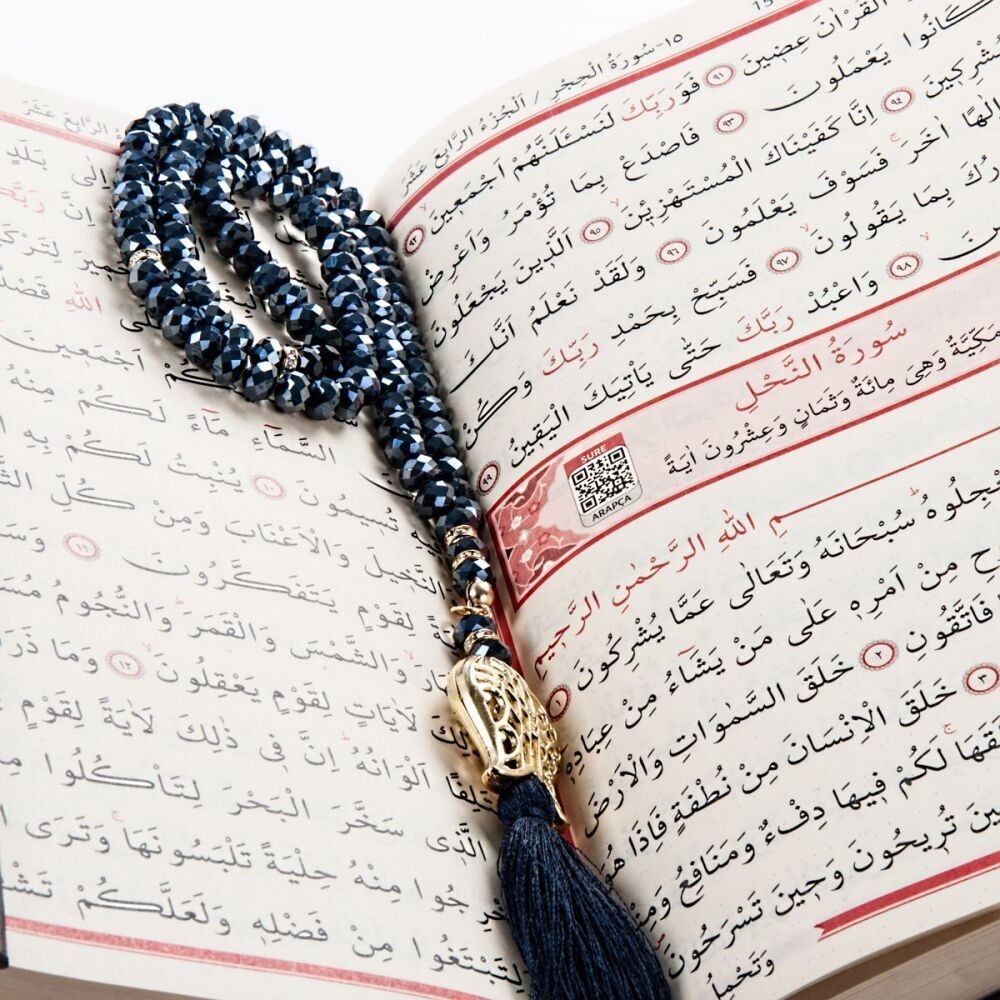 ١٥-سُورَةُ الْحِجْرِ / اَلْجُزْءُ الرَّابِعَ عَشَرَ
الْقُرْاٰنَ عِضٖينَ ﴿٩١﴾ فَوَرَبِّكَ لَنَسْـَٔلَنَّهُمْ اَجْمَعٖينَ ﴿٩٢﴾
كَانُوا يَعْمَلُونَ ﴿٩٣﴾ فَاصْدَعْ بِمَا تُؤْمَرُ وَاَعْرِضْ
ـمُشْرِكٖينَ ﴿٩٤﴾ اِنَّا كَفَيْنَاكَ الْمُسْتَهْزِئٖينَ ﴿٩٥﴾ اَلَّذٖينَ يَجْعَلُونَ
اِلٰهًا اٰخَرَ فَسَوْفَ يَعْلَمُونَ ﴿٩٦﴾ وَلَقَدْ نَعْلَمُ اَنَّكَ
ـدْرُكَ بِمَا يَقُولُونَ ﴿٩٧﴾ فَسَبِّحْ بِحَمْدِ رَبِّكَ وَكُنْ
﴿٩٨﴾ وَاعْبُدْ رَبَّكَ حَتّٰى يَأْتِيَكَ الْيَقٖينُ ﴿٩٩﴾
سُورَةُ النَّحْلِ
مَكِّيَّةٌ وَهِىَ مِائَةٌ وَثَمَانٍ وَعِشْرُونَ اٰيَةً
SURE
ARAPÇA
ـمِ اللّٰهِ الرَّحْمٰنِ الرَّحٖيمِ
ـعْجِلُوهُ سُبْحَانَهُ وَتَعَالٰى عَمَّا يُشْرِكُونَ ﴿١﴾
ـحِ مِنْ اَمْرِهٖ عَلٰى مَنْ يَشَاءُ مِنْ عِبَادِهٖ
فَاتَّقُونِ ﴿٢﴾ خَلَقَ السَّمٰوَاتِ وَالْاَرْضَ
﴿٣﴾ خَلَقَ الْاِنْسَانَ مِنْ نُطْفَةٍ فَاِذَا هُوَ
ـلَقَهَا لَكُمْ فٖيهَا دِفْءٌ وَمَنَافِعُ وَمِنْـ
حٖينَ تُرٖيحُونَ وَحٖينَ تَسْرَحُونَ
وَتَحْمِلُ
الرَّابِعَ عَشَرَ
اِلٰى بَلَدٍ
اِنَّ رَبَّـ
لِتَرْكَـ
اللّٰهِ قَصْدُ
اَجْمَعٖينَ
السَّمَاءِ مَاءً لَكُمْ مِنْهُ
تُسٖيمُونَ ﴿١٠﴾ يُنْبِتُ لَكُمْ بِهِ
النَّخٖيلَ وَالْاَعْنَابَ وَمِنْ كُلِّ
لِقَوْمٍ يَتَفَكَّرُونَ ﴿١١﴾ وَسَـ
وَالشَّمْسَ وَالْقَمَرَ وَالنُّجُومُ مُسَـ
لَاٰيَاتٍ لِقَوْمٍ يَعْقِلُونَ ﴿١٢﴾ وَمَا ذَرَ
اَلْوَانُهُ اِنَّ فٖى ذٰلِكَ لَاٰيَةً لِقَوْمٍ
الَّذٖى سَخَّرَ الْبَحْرَ لِتَأْكُلُوا مِـ
ـرِجُوا مِنْهُ حِلْيَةً تَلْبَسُونَهَا وَتَرَى
لِتَبْتَغُوا مِنْ فَضْلِهٖ وَلَعَلَّكُمْ تَشْـ